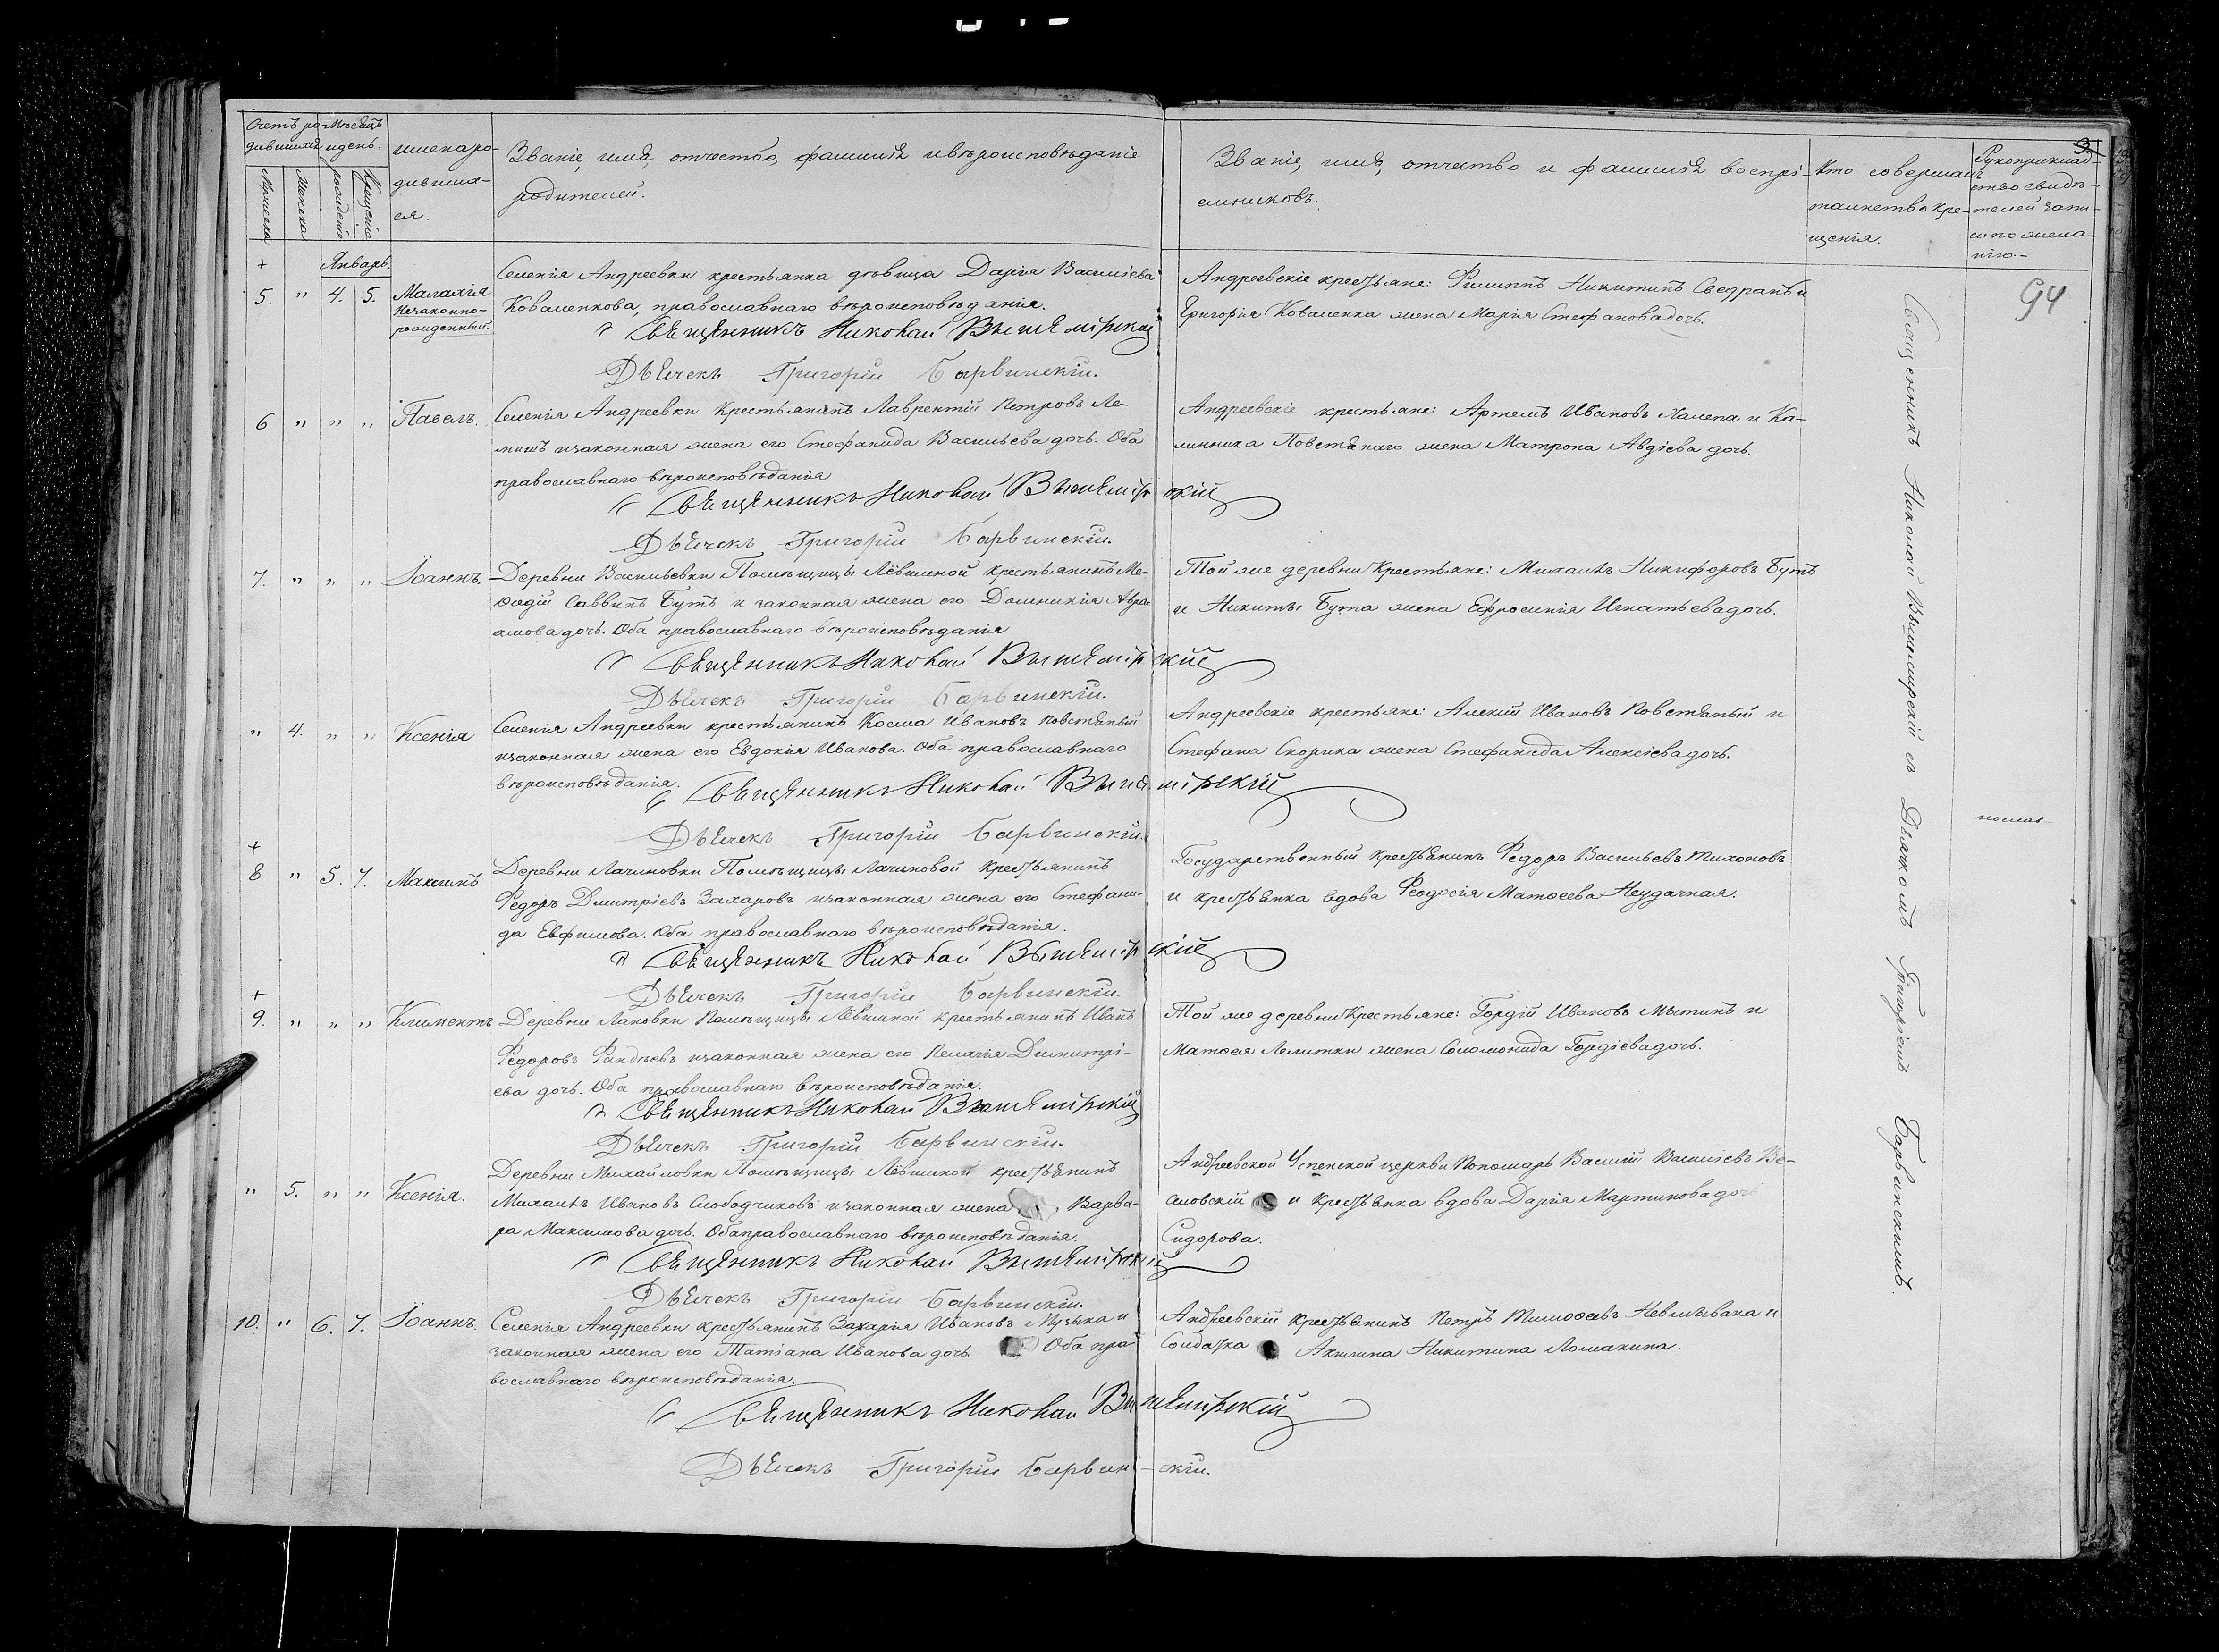 Счетъ ро- Мѣсяцъ
дившихся и день.
Мужеска
Женска
рожденія
Крещенія
Имена ро-
дивших-
ся.
Званіе, имя, отчество, фамилія и вѣроисповѣданіе
родителей.
Званіе, имя, отчество и фамилія воспрі-
емниковъ.
Кто совершалъ
таинство кре-
щенія.
Рукоприклад-
ство свидѣ-
телей запи-
си по жела-
нію.
94
Январь.
+
5. " 4. 5. Малахія
незаконно-
рожденный.
Селенія Андреевки крестьянка дѣвица Дарія Василіева
Коваленкова, православнаго вѣроисповѣданія.
Священникъ Николай Вышемірскій
Дьячекъ Григорій Барвинскій.
Андреевскіе крестьяне: Филиппъ Никитинъ Сведранъ и
Григорія Коваленка жена Марія Стефанова дочь.
6 " " " Павелъ.
Селенія Андреевки крестьянинъ Лаврентій Петровъ Ле-
и законная жена его Стефанида Васильева дочь. Оба
православнаго вѣроисповѣданія
Священникъ Николай Вышемірскій
Дьячекъ Григорій Барвинскій.
Андреевскіе крестьяне: Артемъ Ивановъ Халепа и Ка-
линника Повстянаго жена Матрона Авдіева дочь.
7. " " " Іоаннъ.
Деревни Васильевки Помѣщицы Лёвшиной крестьянинъ Ме-
ѳодій Саввинъ Бутъ и законная жена его Домникія Авра-
амова дочь. Оба православнаго вѣроисповѣданія
Священникъ Николай Вышемірскій
Дьячекъ Григорій Барвинскій.
Той же деревни крестьяне: Михаилъ Никифоровъ Бутъ
и Никиты Бута жена Ефросинія Игнатьева дочь.
" 4. " " Ксенія
Селенія Андреевки крестьянинъ Косма Ивановъ Повстяный
и законная жена его Евдокія Иванова. Оба православнаго
вѣроисповѣданія.
Священникъ Николай Вышемірскій
Дьячекъ Григорій Барвинскій.
Андреевскіе крестьяне: Алексій Ивановъ Повстяный и
Стефана Скорика жена Стефанида Алексіева дочь.
+
8 " 5. 7. Максимъ
Деревни Лачиновки Помѣщицы Лачиновой крестьянинъ
Ѳедоръ Димитріевъ Захаровъ и законная жена его Стефани-
да Евфимова. Оба православнаго вѣроисповѣданія.
Священникъ Николай Вышемірскій
Дьячекъ Григорій Барвинскій.
Государственный крестьянинъ Ѳедоръ Васильевъ Тихоновъ
и крестьянка вдова Ѳеодосія Матѳеева Неудачная.
+
9. " " " Климентъ
Деревни Помѣщицы Лёвшиной крестьянинъ Иванъ
Ѳедоровъ и законная жена его Пелагія Димитрі-
ева дочь. Оба православнаго вѣроисповѣданія.
Священникъ Николай Вышемірскій
Дьячекъ Григорій Барвинскій.
Той же деревни крестьяне: Гордій Ивановъ Мытинъ и
Матѳея жена Соломонида Гордіева дочь.
" 5. " " Ксенія.
Деревни Михайловки Помѣщицы Лёвшиной крестьянинъ
Михаилъ Ивановъ Слободчиковъ и законная жена Варва-
ра Максимова дочь. Оба православнаго вѣроисповѣданія.
Священникъ Николай Вышемірскій
Дьячекъ Григорій Барвинскій.
Андреевской Успенской церкви Пономарь Василій Василіевъ
и крестьянка вдова Дарія Мартинова дочь
Сидорова.
10. " 6. 7. Іоаннъ.
Селенія Андреевки крестьянинъ Захарія Ивановъ Музыка и
законная жена его Татіана Иванова дочь. Оба пра-
вославнаго вѣроисповѣданія.
Священникъ Николай Вышемірскій
Дьячекъ Григорій Барвинскій.
Андреевскій крестьянинъ Петръ Тимоѳеевъ Невмывака и
Солдатка Акилина Никитина Ломакина.
Священникъ Николай Вышемірскій съ Дьячкомъ Григоріемъ Барвинскимъ.